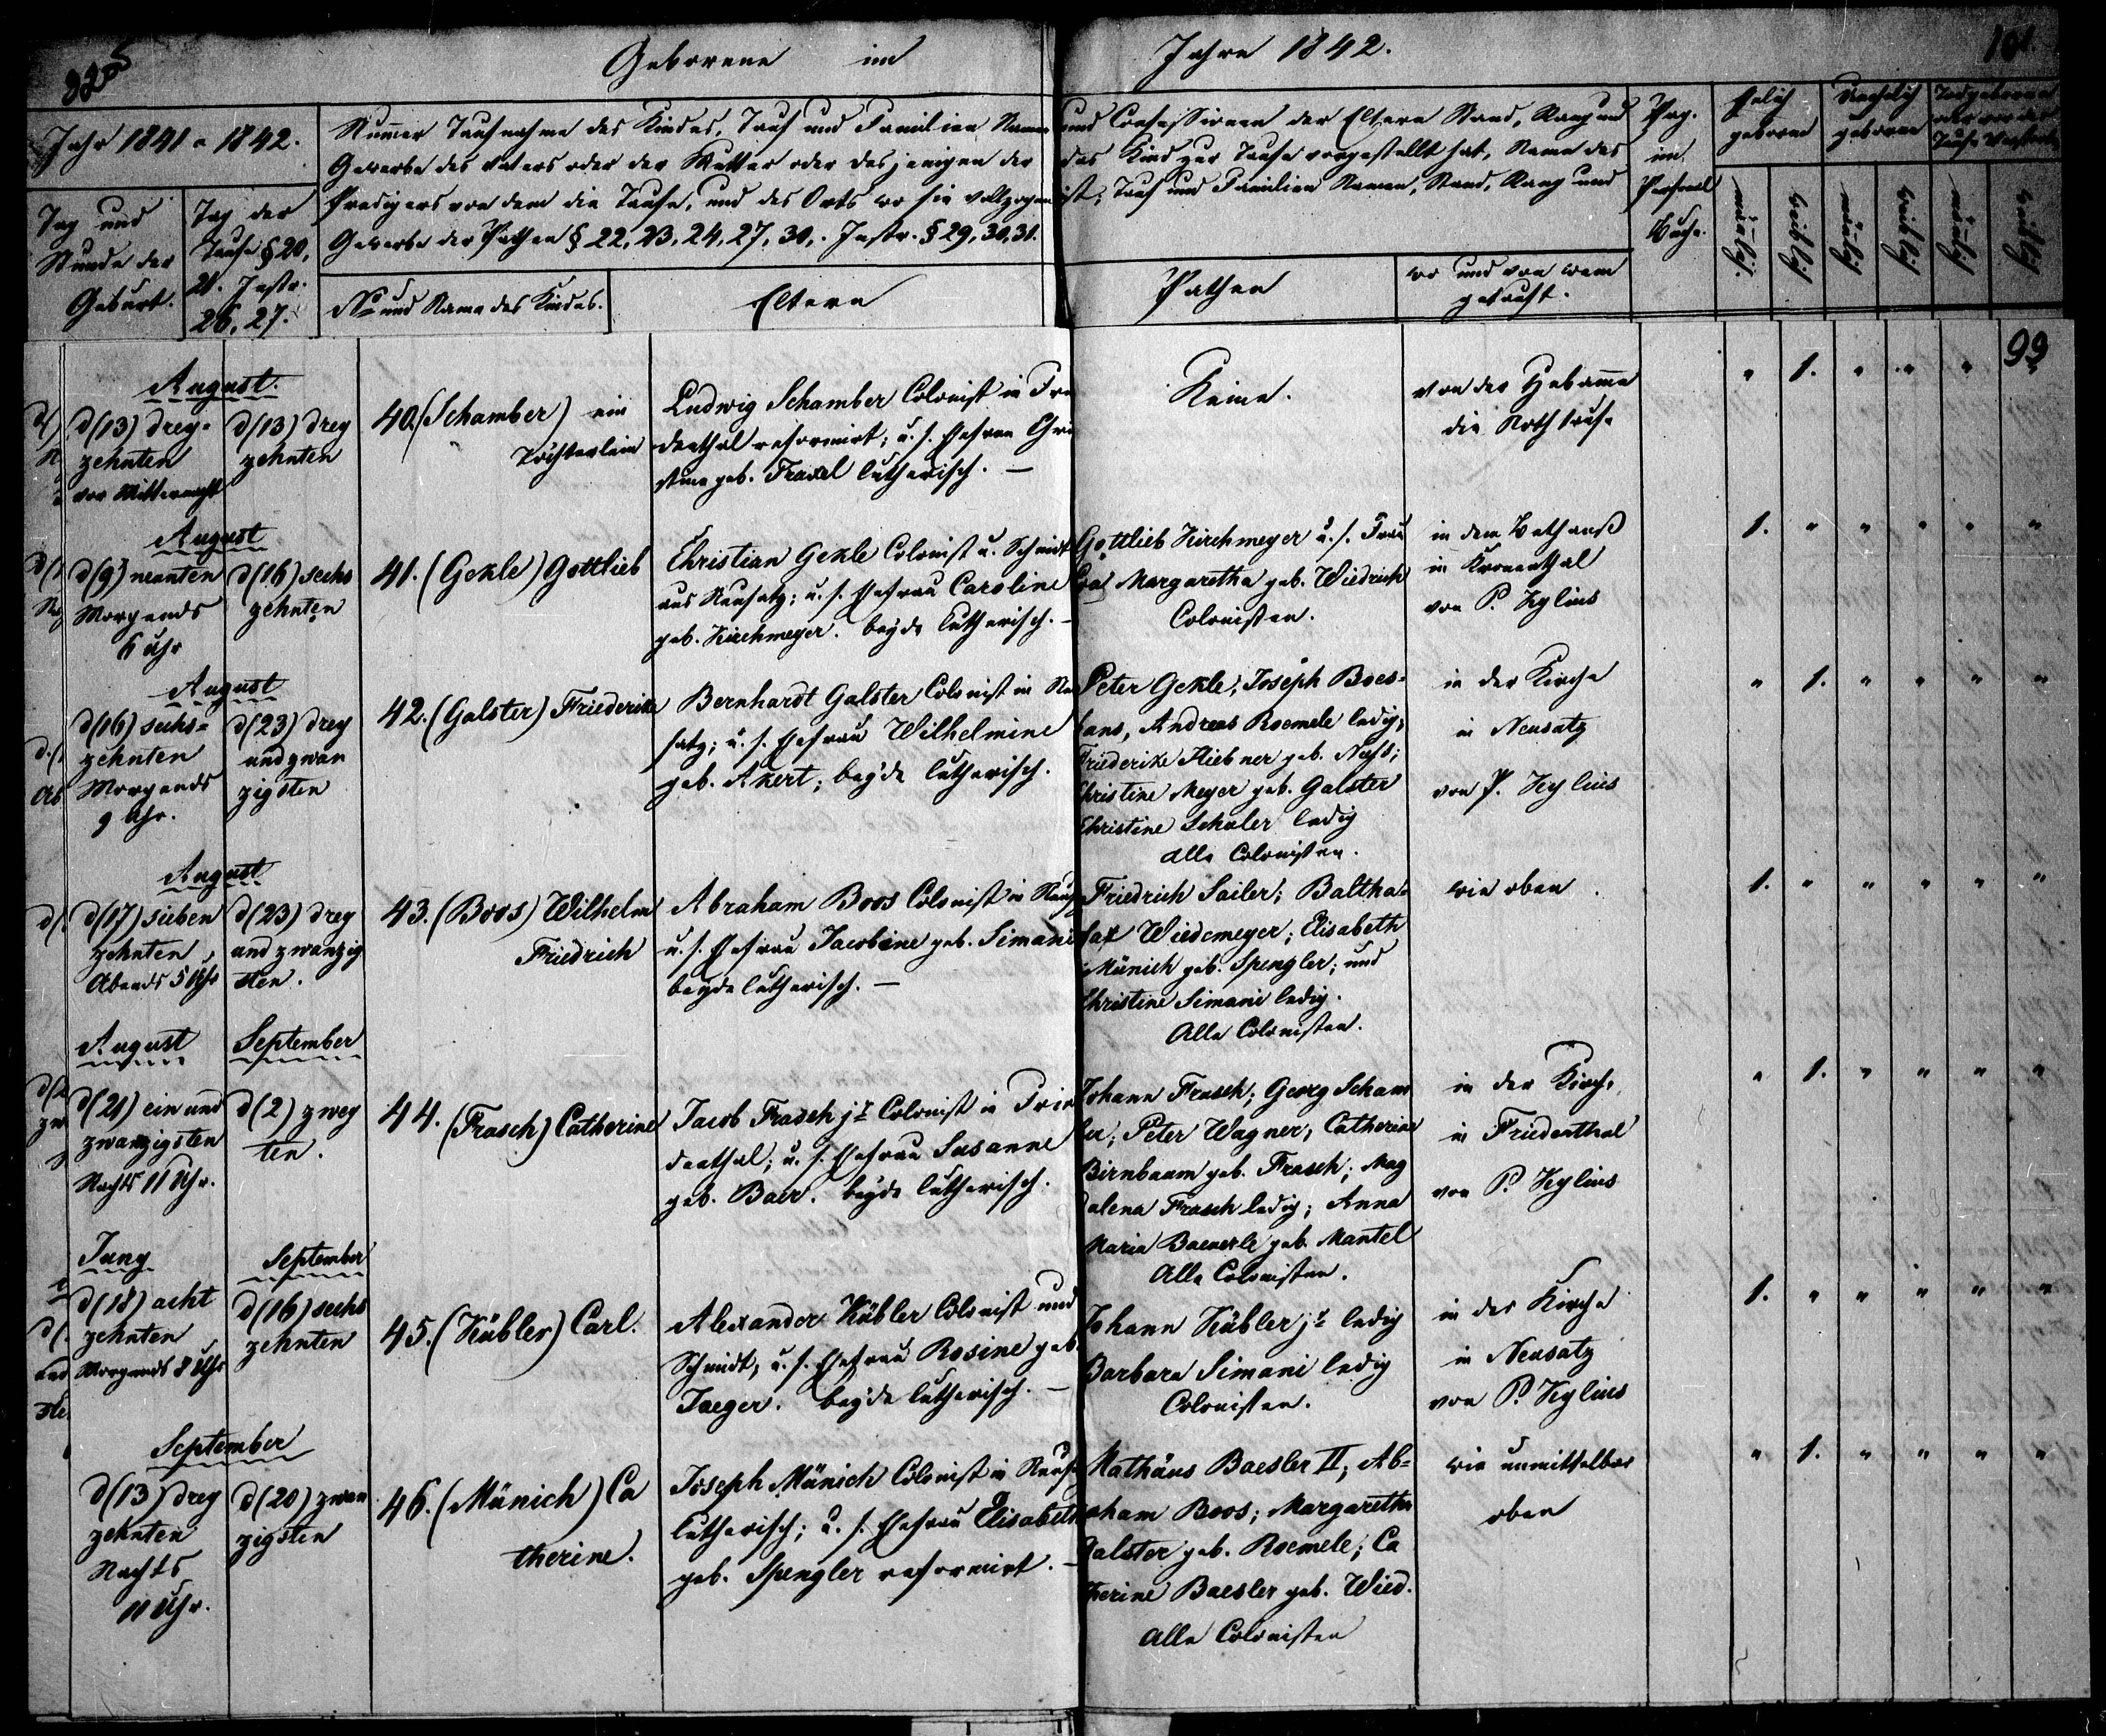 Geborene im Jahre 1842.
101.
Jahr 1841 u 1842.
Tag und
Stunde der
Geburt.
Tag der
Taufe § 20,
21. Instr.
26, 27.
Numer Taufname des Kindes, Tauf und Familien Namen und Confessionen der Eltern Stand, Rang und
Gewerbe des Vaters oder der Mutter oder desjenigen der das Kind zur Taufe vorgestellt hat, Name des
Predigers von dem die Taufe, und des Orts wo sie vollzogen ist; Tauf und Familien Namen, Stand, Rang und
Gewerbe der Pathen § 22, 23, 24, 27, 30,. Instr. § 29, 30, 31.
No und Name des Kindes.
Eltern
Pathen
wo und von wem
getauft.
Pag.
im
Personal
Buche.
Ehelich
geboren
Unehelich
geboren
Todgeboren
oder vor der
Taufe
mänlich
weiblich
mänlich
weiblich
mänlich
weiblich
99
August.
d (13) drey-
zehnten
vor Mitternacht
d (13) drey
zehnten
40. (Schamber) ein
Töchterlein
Ludwig Schamber Colonist in Frie
denthal reformirt; u. s. Ehefrau Chri
stine geb. Frasel lutherisch. —
Keine.
von der Hebame
die Nothtaufe
" 1. " " "
August
d (9) neunten
Morgends
6 Uhr
d (16) sechs
zehnten
41. (Gekle) Gottlieb
Christian Gekle Colonist u. Schmidt
aus Neusatz; u. s. Ehefrau Caroline
geb. Kirchmeyer. beyde lutherisch. –
Gottlieb Kirchmeyer u. s. Frau
Eva Margaretha geb. Wiedrich
Colonisten.
in dem Bethauß
in Kronenthal
von P. Kylius
1. " " " " "
August
d (16) sechs=
zehnten
Morgends
9 Uhr.
d (23) drey
und zwan
zigsten
42. (Galster) Friederike
Bernhardt Galster Colonist in Neu
satz; u. s. Ehefrau Wilhelmine
geb. Akert; beyde lutherisch.
Peter Gekle; Joseph Boes=
hans, Andreas Roemele ledig;
Friederike Hiebner geb. Naß;
Christine Meyer geb. Galster
Christine Schuler ledig
alle Colonisten.
in der Kirche
in Neusatz
von P. Kylius
" 1. " " " "
August
d (17) sieben
zehnten
Abends 5 Uhr
d (23) drey
und zwanzig
sten.
43. (Boos) Wilhelm
Friedrich
Abraham Boos Colonist in Neusatz
u. s. Ehefrau Jacobine geb. Simani
beyde lutherisch. —
Friedrich Sailer; Baltha=
sar Wiedemeyer; Elisabeth
Münich geb. Spengler; und
Christine Simani ledig.
Alle Colonisten.
wie oben.
1. " " " " "
August
d (21) ein und
zwanzigsten
Nachts 11 Uhr.
September
d (2) zwey
ten.
44. (Frasch) Catherine
Jacob Frasch jr Colonist in Frie
denthal; u. s. Ehefrau Susanne
geb. Baer. beyde lutherisch.
Johann Frasch; Georg Scham
ber; Peter Wagner; Catherine
Birnbaum geb. Frasch; Mag
dalena Frasch ledig; Anna
Maria Baeuerle geb. Mantel
Alle Colonisten.
in der Kirche
in Friedenthal
von P. Kylius
" 1. " " " "
Juny
d (18) acht
zehnten
Morgends 8 Uhr
September
d (16) sechs
zehnten
45. (Kübler) Carl.
Alexander Kübler Colonist und
Schmidt, u. s. Ehefrau Rosine geb.
Jaeger. beyde lutherisch. —
Johann Kübler jr ledig
Barbara Simani ledig
Colonisten.
in der Kirche
in Neusatz
von P. Kylius
1. " " " " "
September
d (13) drey
zehnten
Nachts
11 Uhr.
d (20) zwan
zigsten
46. (Münich) Ca
therine.
Joseph Münich Colonist in Neusatz
lutherisch; u. s. Ehefrau Elisabeth
geb. Spengler reformirt. —
Mathäus Baesler II; Ab=
raham Boos; Margaretha
Galster geb. Roemele; Ca
therine Baesler geb. Wied.
alle Colonisten
wie unmittelbar
oben
" 1. " " " "